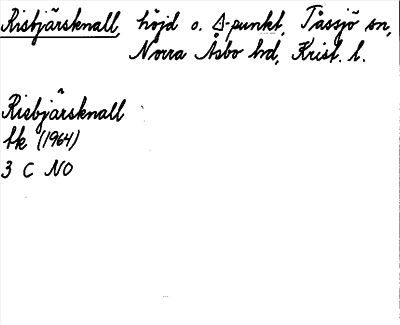 Risbjärsknall, höjd o. Δ-punkt, Tåssjö sn,
Norra Åsbo hd, Krist. l.
Risbjärsknall
tk (1964)
3 C NO